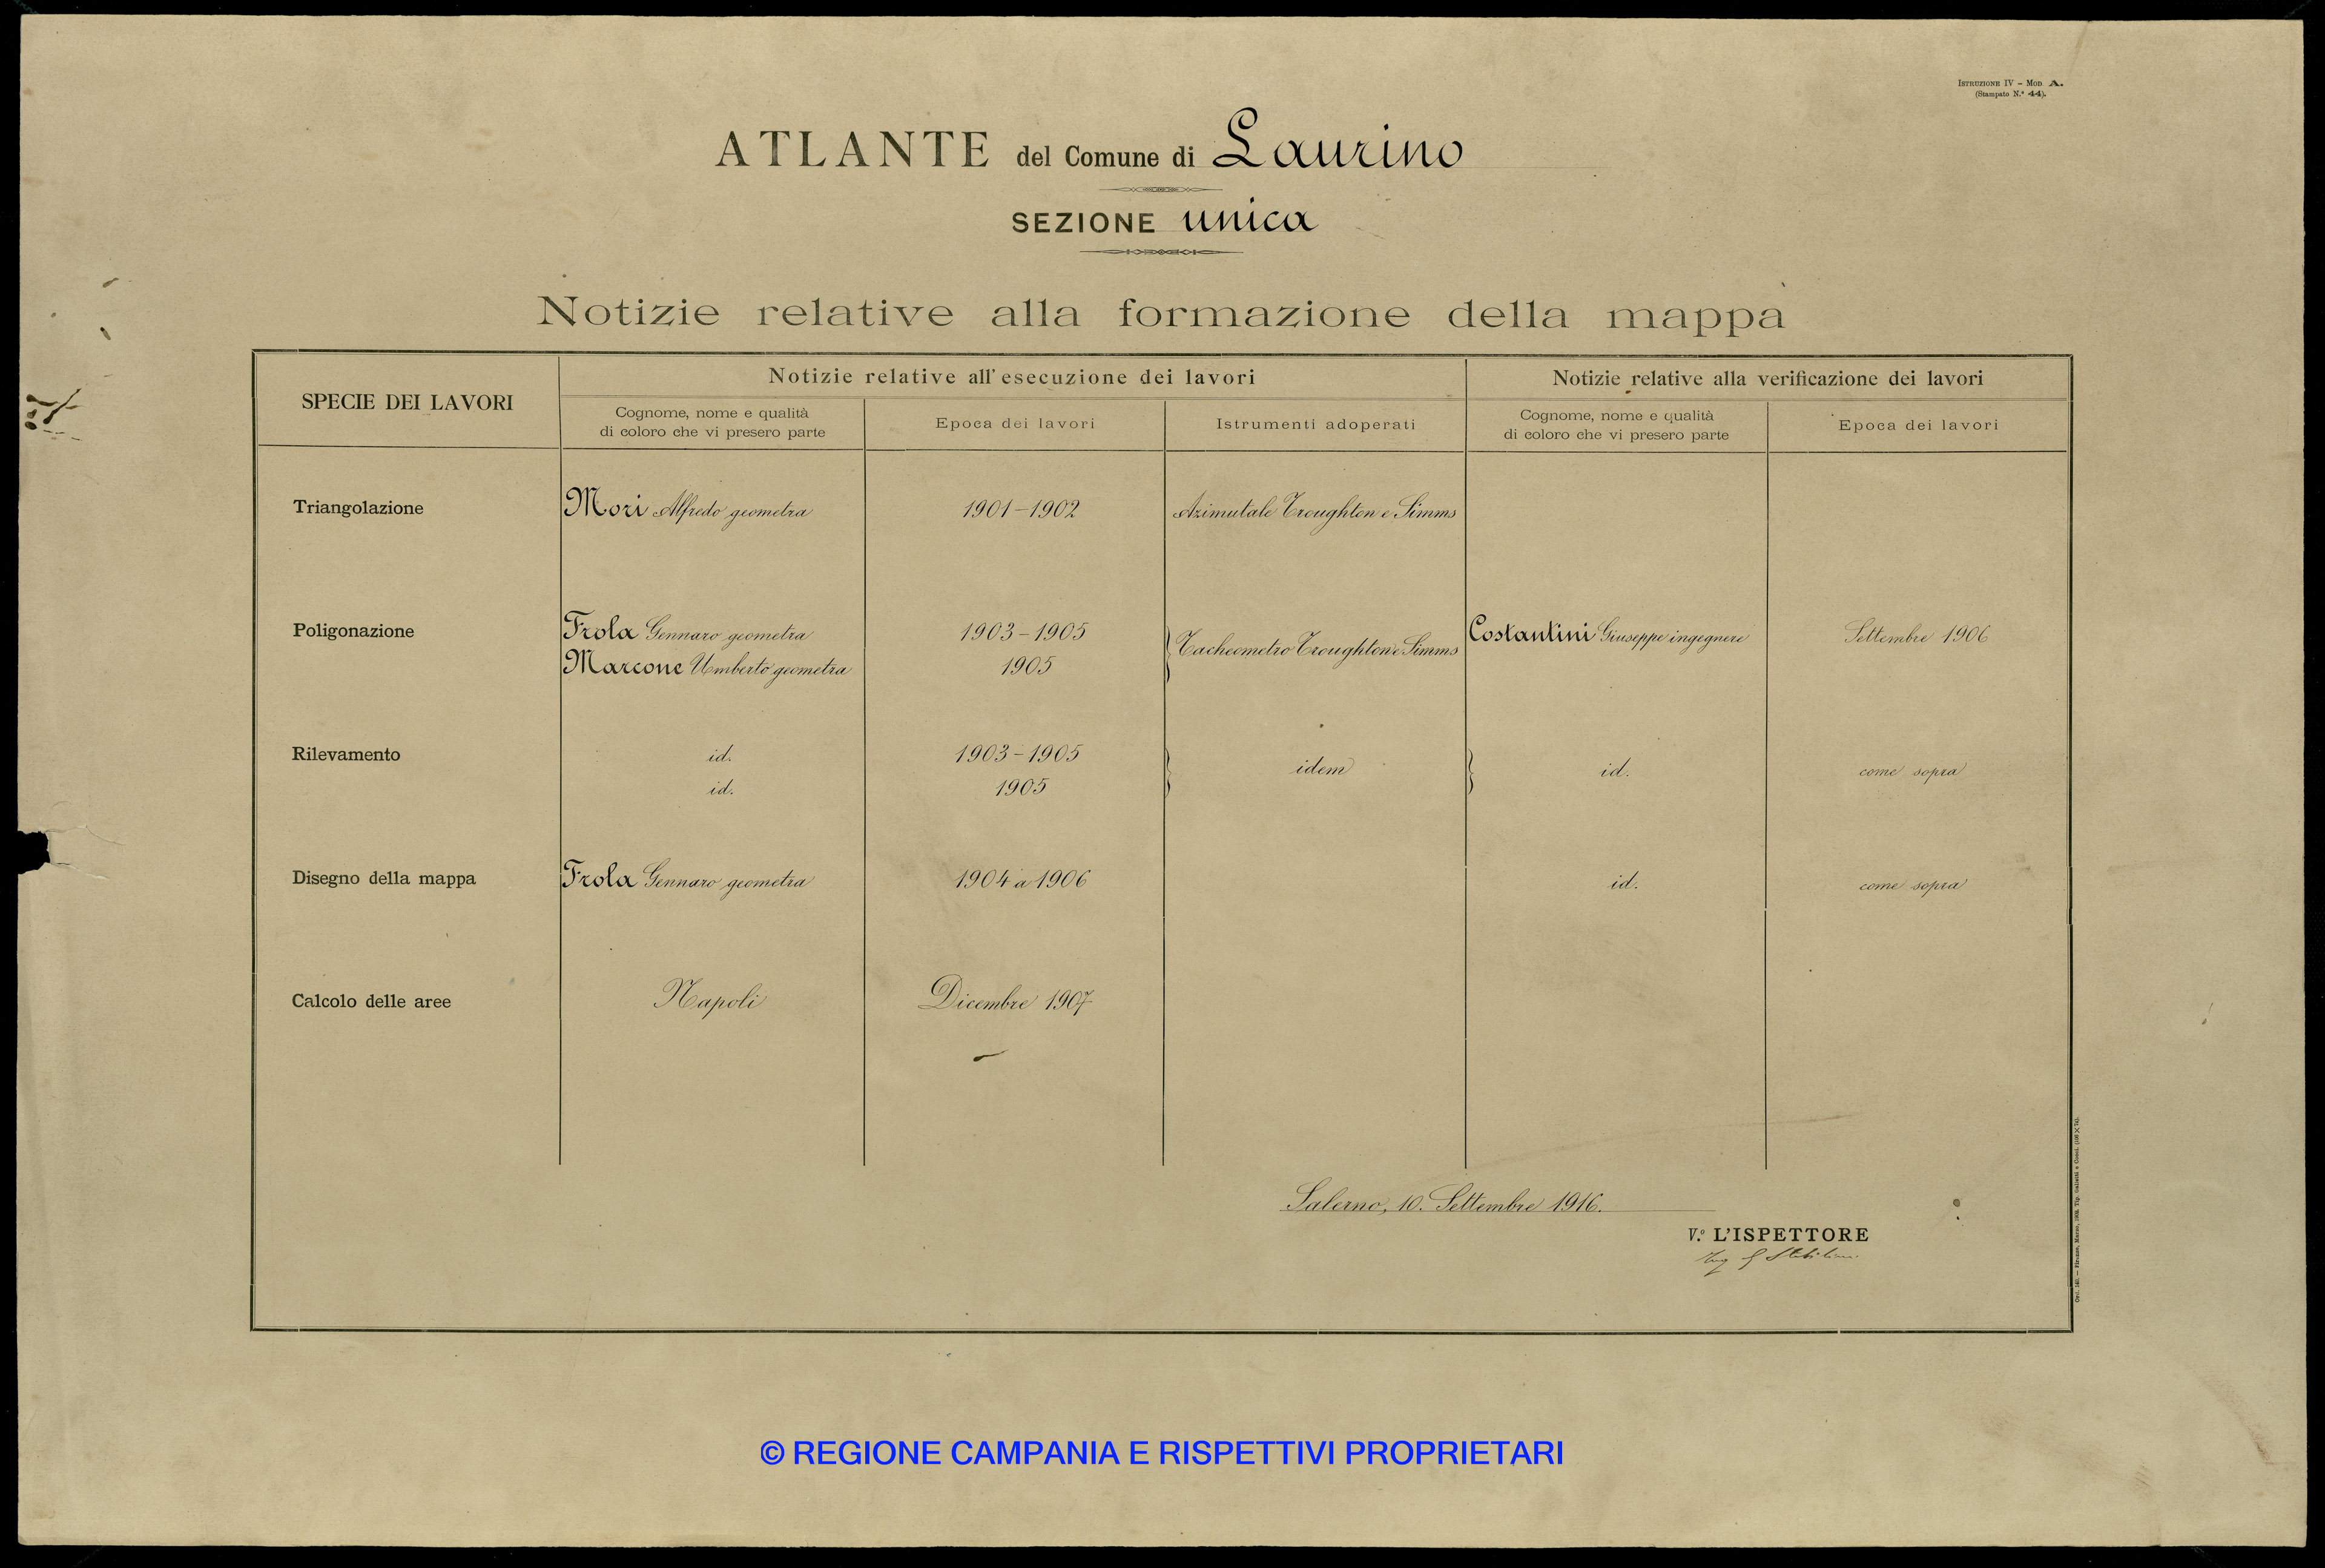 ISTRUZIONE IV – MOD. A.
(Stampato N.° 44).
ATLANTE del Comune di Laurino
SEZIONE unica
Notizie relative alla formazione della mappa
SPECIE DEI LAVORI
Notizie relative all'esecuzione dei lavori
Notizie relative alla verificazione dei lavori
Cognome, nome e qualità
di coloro che vi presero parte
Epoca dei lavori
Istrumenti adoperati
Cognome, nome e qualità
di coloro che vi presero parte
Epoca dei lavori
Triangolazione
Mori Alfredo geometra
1901–1902
Azimutale Troughton e Simms
Poligonazione
Frola Gennaro geometra
1903–1905
Marcone Umberto geometra
1905
Tacheometro Troughton e Simms
Costantini Giuseppe ingegnere
Settembre 1906
Rilevamento
id.
1903–1905
id.
1905
idem
id.
come sopra
Disegno della mappa
Frola Gennaro geometra
1904 a 1906
id.
come sopra
Calcolo delle aree
Napoli
Dicembre 1907
Salerno, 10. Settembre 1916.
V.° L'ISPETTORE
Ing
© REGIONE CAMPANIA E RISPETTIVI PROPRIETARI